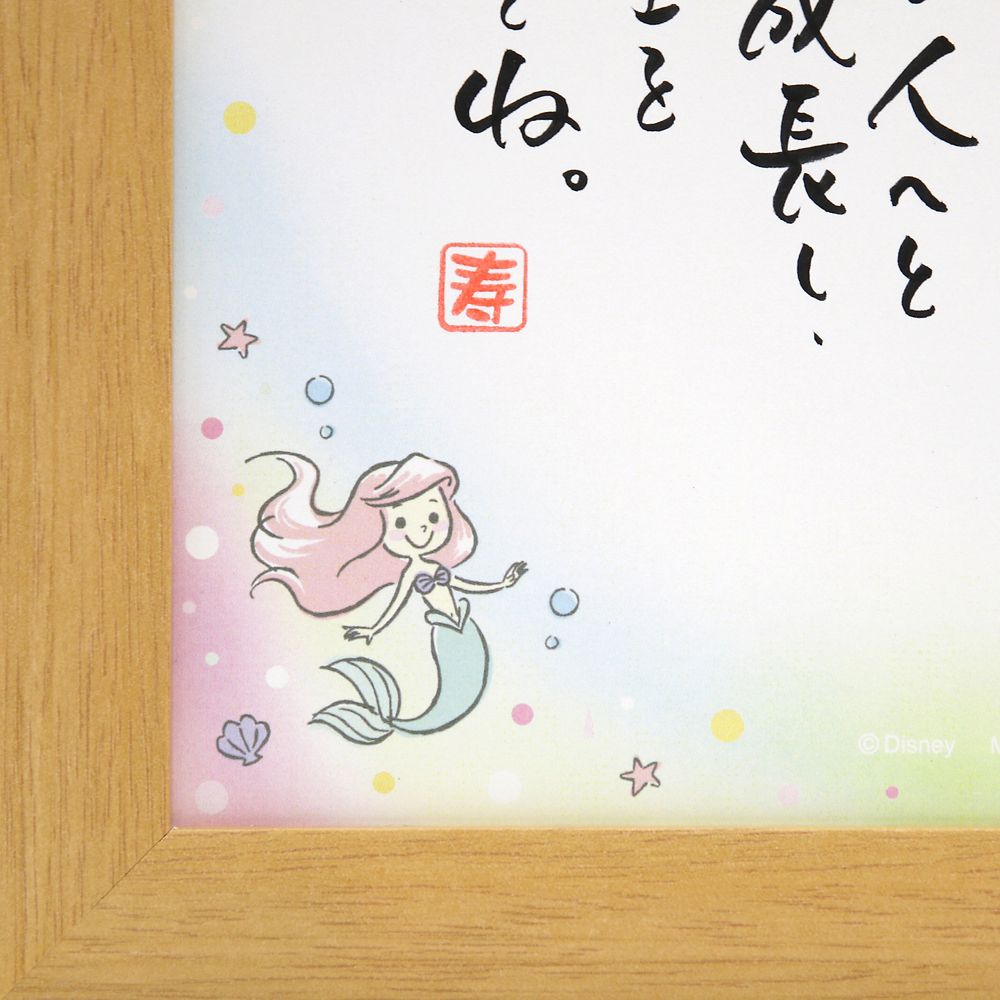 人へと
成長し、
を
ね。
寿
©Disney